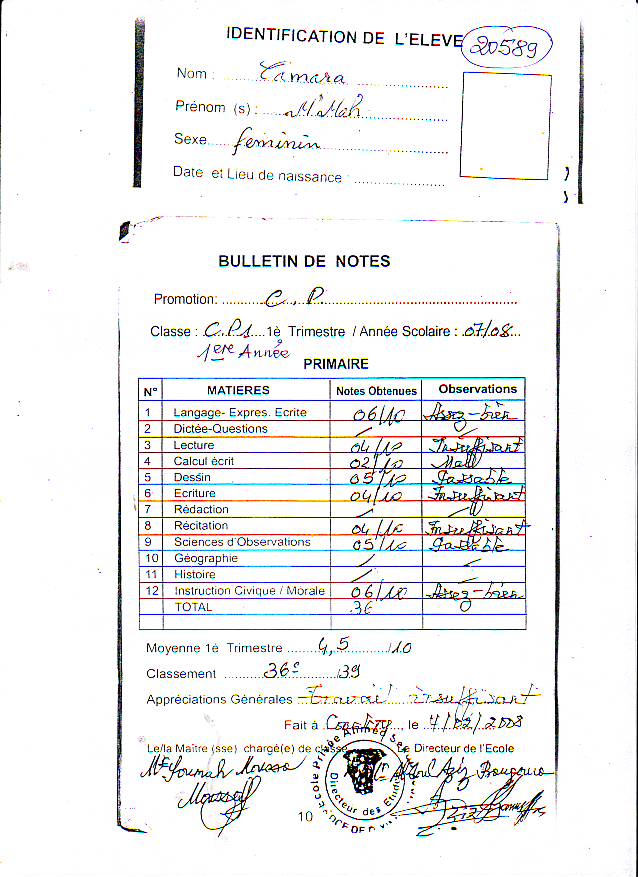 IDENTIFICATION DE L'ELEVE 20589
Nom : Camara
Prénom (s) : M'Mah
Sexe féminin
Date et Lieu de naissance :
BULLETIN DE NOTES
Promotion: C.P.
Classe : C.P1 1è Trimestre / Année Scolaire : 07/08
1ere Année
PRIMAIRE
N° MATIERES Notes Obtenues Observations
1 Langage- Expres. Ecrite 06/10 Assez-bien
2 Dictée-Questions
3 Lecture 04/10 Insuffisant
4 Calcul écrit 02/10 Mal
5 Dessin 05/10 Passable
6 Ecriture 04/10 Insuffisant
7 Rédaction
8 Récitation 04/10 Insuffisant
9 Sciences d'Observations 05/10 Passable
10 Géographie
11 Histoire
12 Instruction Civique / Morale 06/10 Assez-bien
TOTAL 36
Moyenne 1è Trimestre 4,5 /10
Classement 36e /39
Appréciations Générales Travail insuffisant
Fait à Conakry, le 4/02/2008
Le/la Maître (sse) chargé(e) de classe Le Directeur de l'Ecole
Ecole Privée Ahmed Sek
Directeur des Etudes
10